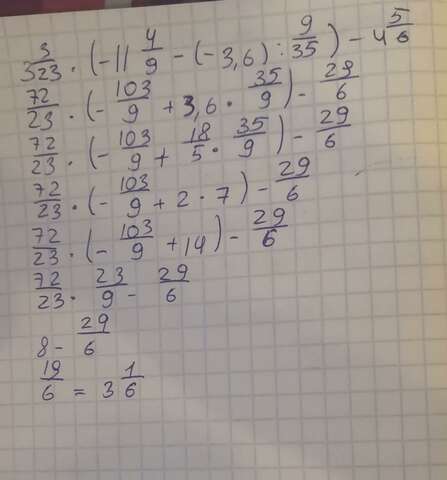 3 3/23 · (-11 4/9 - (-3,6) : 9/35) - 4 5/6
72/23 · (- 103/9 + 3,6 · 35/9) - 29/6
72/23 · (- 103/9 + 18/5 · 35/9) - 29/6
72/23 · (- 103/9 + 2 · 7) - 29/6
72/23 · (- 103/9 + 14) - 29/6
72/23 · 23/9 - 29/6
8 - 29/6
19/6 = 3 1/6